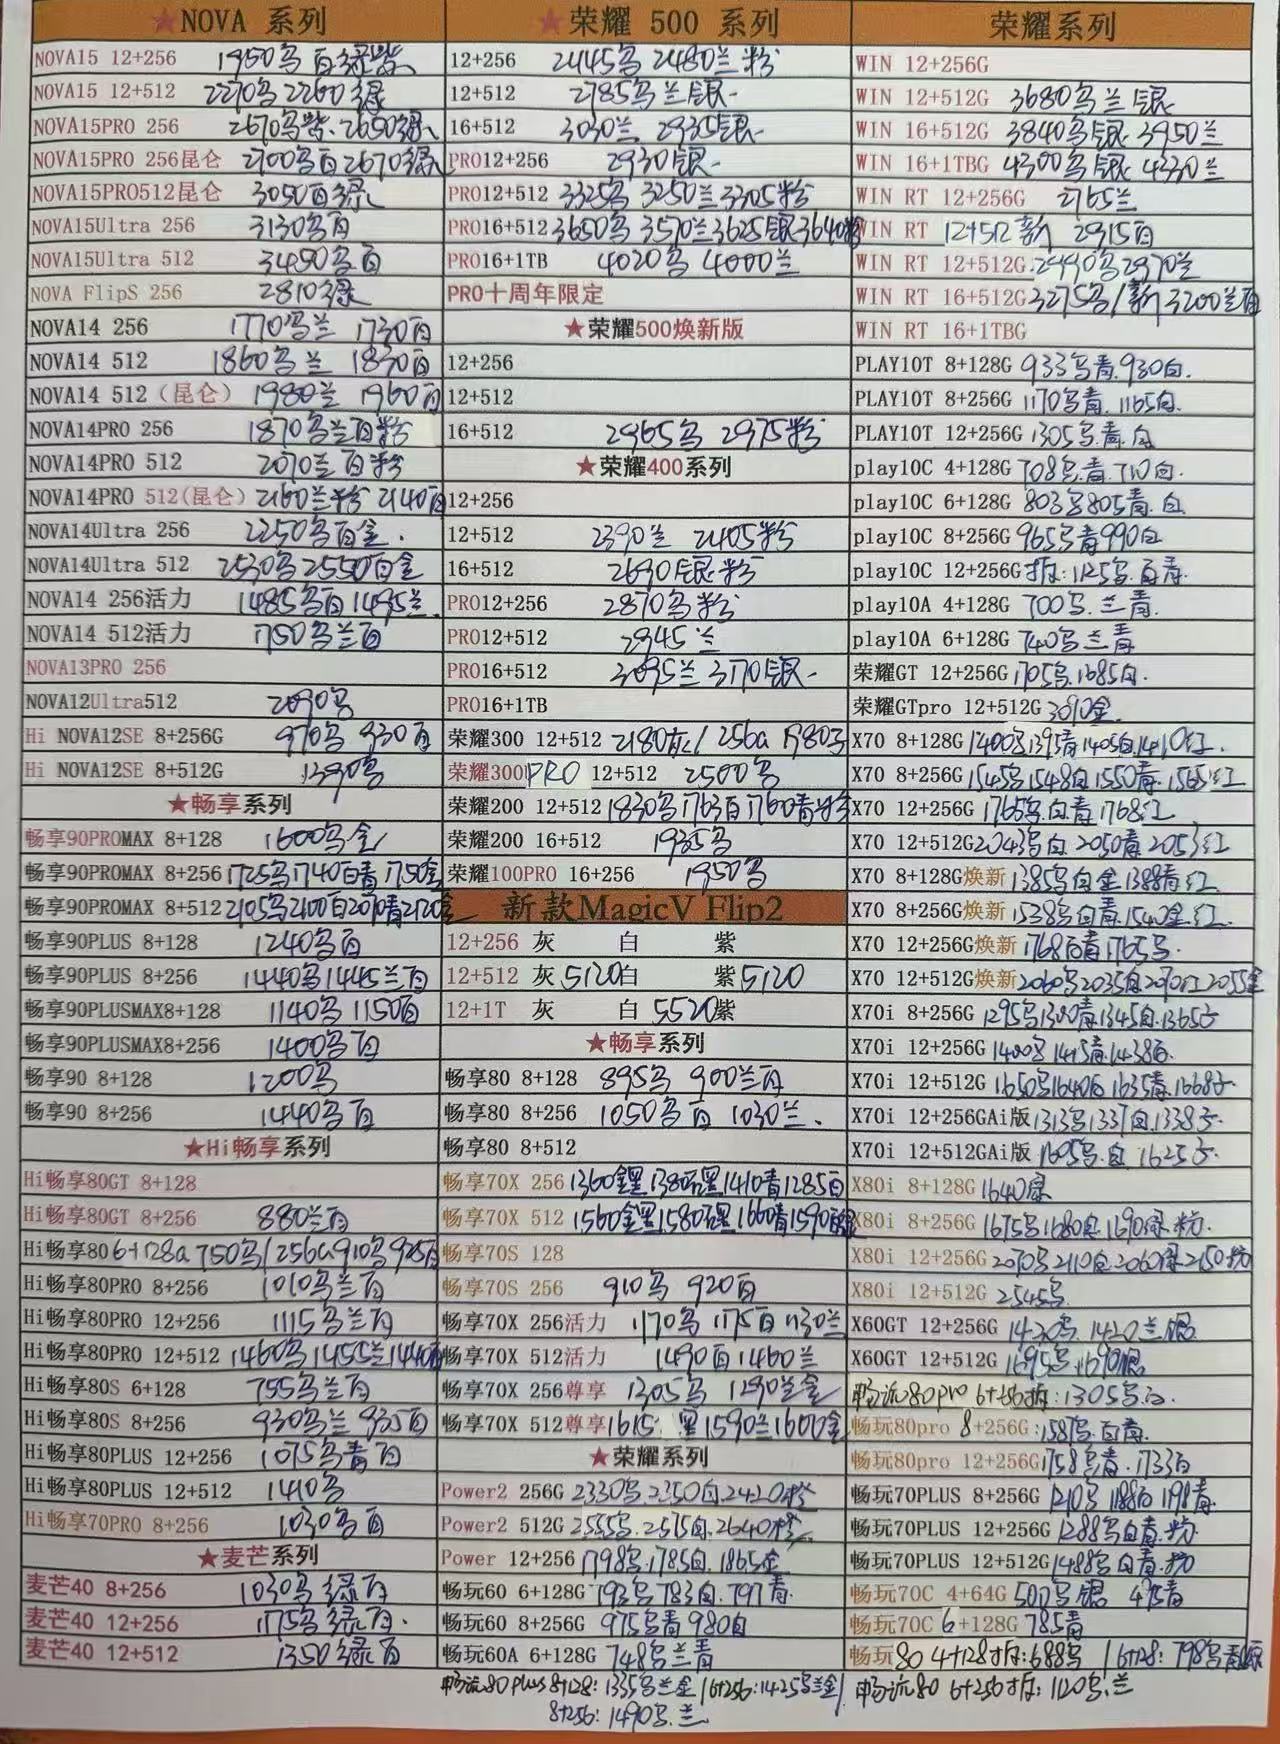 ★NOVA 系列
NOVA15 12+256 1950乌白绿紫
NOVA15 12+512 2270乌2260绿
NOVA15PRO 256 2670乌紫.2650绿
NOVA15PRO 256昆仑 2700乌白2670绿
NOVA15PRO512昆仑 3050白绿
NOVA15Ultra 256 3130乌白
NOVA15Ultra 512 3450乌白
NOVA FlipS 256 2810绿
NOVA14 256 1770乌兰 1730白
NOVA14 512 1860乌兰 1830白
NOVA14 512（昆仑） 1980兰 1960白
NOVA14PRO 256 1870乌兰白粉
NOVA14PRO 512 2070兰白粉
NOVA14PRO 512(昆仑) 2160兰粉 2140白
NOVA14Ultra 256 2250乌白金.
NOVA14Ultra 512 2530乌2550白金
NOVA14 256活力 1485乌白1495兰
NOVA14 512活力 1750乌兰白
NOVA13PRO 256
NOVA12Ultra512 2090乌
Hi NOVA12SE 8+256G 970乌 930白
Hi NOVA12SE 8+512G 1390乌
★畅享系列
畅享90PROMAX 8+128 1600乌金
畅享90PROMAX 8+256 1725乌1740白青1750金
畅享90PROMAX 8+512 2105乌2100白2070青2120金
畅享90PLUS 8+128 1240乌白
畅享90PLUS 8+256 1440乌1445兰白
畅享90PLUSMAX8+128 1140乌1150白
畅享90PLUSMAX8+256 1400乌白
畅享90 8+128 1200乌
畅享90 8+256 1440乌白
★Hi畅享系列
Hi畅享80GT 8+128
Hi畅享80GT 8+256 880兰白
Hi畅享80 6+128G 750乌/256G910乌925白
Hi畅享80PRO 8+256 1010乌兰白
Hi畅享80PRO 12+256 1115乌兰白
Hi畅享80PRO 12+512 1460乌1455兰1440白
Hi畅享80S 6+128 755乌兰白
Hi畅享80S 8+256 930乌兰 935白
Hi畅享80PLUS 12+256 1075乌青白
Hi畅享80PLUS 12+512 1410乌
Hi畅享70PRO 8+256 1030乌白
★麦芒系列
麦芒40 8+256 1030乌绿白
麦芒40 12+256 1175乌绿白.
麦芒40 12+512 1350绿白
★荣耀 500 系列
12+256 2445乌 2480兰粉
12+512 2785乌兰银
16+512 3030兰 2935银
PRO12+256 2930银
PRO12+512 3325乌 3250兰3305粉
PRO16+512 3650乌 3570兰3625银3640粉
PRO16+1TB 4020乌 4000兰
PRO十周年限定
★荣耀500焕新版
12+256
12+512
16+512 2965乌 2975粉
★荣耀400系列
12+256
12+512 2390兰 2405粉
16+512 2690银粉
PRO12+256 2870乌粉
PRO12+512 2945兰
PRO16+512 3095兰3170银
PRO16+1TB
荣耀300 12+512 2180灰/256G 1980乌
荣耀300PRO 12+512 2500乌
荣耀200 12+512 1830乌1763白1760青粉
荣耀200 16+512 1935乌
荣耀100PRO 16+256 1950乌
新款MagicV Flip2
12+256 灰 白 紫
12+512 灰5120白 紫5120
12+1T 灰 白 5520紫
★畅享系列
畅享80 8+128 895乌 900兰白
畅享80 8+256 1050乌白 1030兰.
畅享80 8+512
畅享70X 256 1360金黑1380石黑1410青1285白
畅享70X 512 1560金黑1580石黑1660青1590白
畅享70S 128
畅享70S 256 910乌 920白
畅享70X 256活力 1170乌 1175白1130兰
畅享70X 512活力 1490白1460兰
畅享70X 256尊享 1305乌 1290兰金
畅享70X 512尊享1615.黑1590兰1600金
★荣耀系列
Power2 256G 2330乌.2350白.2420橙
Power2 512G 2555乌.2575白.2640橙
Power 12+256 1798乌.1785白.1865金
畅玩60 6+128G 793乌783白.797青.
畅玩60 8+256G 975乌青980白
畅玩60A 6+128G 748乌兰青
荣耀系列
WIN 12+256G
WIN 12+512G 3680乌兰银
WIN 16+512G 3840乌银 3950兰
WIN 16+1TBG 4300乌银 4330兰
WIN RT 12+256G 2765兰
WIN RT 12+512新 2915白
WIN RT 12+512G.2990乌2970兰
WIN RT 16+512G3275乌/新3200兰白
WIN RT 16+1TBG
PLAY10T 8+128G 933乌青.930白.
PLAY10T 8+256G 1170乌青.1165白.
PLAY10T 12+256G 1305乌.青.白
play10C 4+128G 708乌.青.710白.
play10C 6+128G 803乌805青.白
play10C 8+256G 965乌青990白
play10C 12+256G折:1125乌.白青.
play10A 4+128G 700乌.兰青.
play10A 6+128G 740乌兰青
荣耀GT 12+256G 1705乌.1685白.
荣耀GTpro 12+512G 3090金.
X70 8+128G 1400乌1395青1405白1410红.
X70 8+256G 1545乌1548白1550青.1565红
X70 12+256G 1765乌.白青1768红
X70 12+512G2043乌白 2050青2053红
X70 8+128G焕新 1385乌白金1388青红
X70 8+256G焕新 1538乌白青.1540金.红
X70 12+256G焕新 1768白青1765乌.
X70 12+512G焕新2060乌2035白2070红2055金
X70i 8+256G 1295乌1300青1345白.1365子
X70i 12+256G 1400乌 1415青.1438白.
X70i 12+512G 1650乌1640白1635青.1668子
X70i 12+256GAi版1313乌1337白.1338子.
X70i 12+512GAi版 1605乌.白 1625子.
X80i 8+128G 1640绿
X80i 8+256G 1675乌1680白.1690绿.粉.
X80i 12+256G 2070乌2110白2060绿2150粉
X80i 12+512G 2545乌
X60GT 12+256G 1430乌.1420兰银
X60GT 12+512G 1695乌.1690银
畅玩80pro 6+256折:1305乌白.
畅玩80pro 8+256G:1587乌.白青.
畅玩80pro 12+256G1758乌青.1733白
畅玩70PLUS 8+256G 1210乌1188白1198青.
畅玩70PLUS 12+256G 1288乌白青.粉
畅玩70PLUS 12+512G1488乌白青.粉
畅玩70C 4+64G 500乌银 495青
畅玩70C 6+128G 785青
畅玩80 4+128折:688乌 /6+128:798乌青银
畅玩80plus 8+128:1335乌兰金/6+256:1425乌兰金/畅玩80 6+256折:1120乌.兰
8+256:1490乌.兰